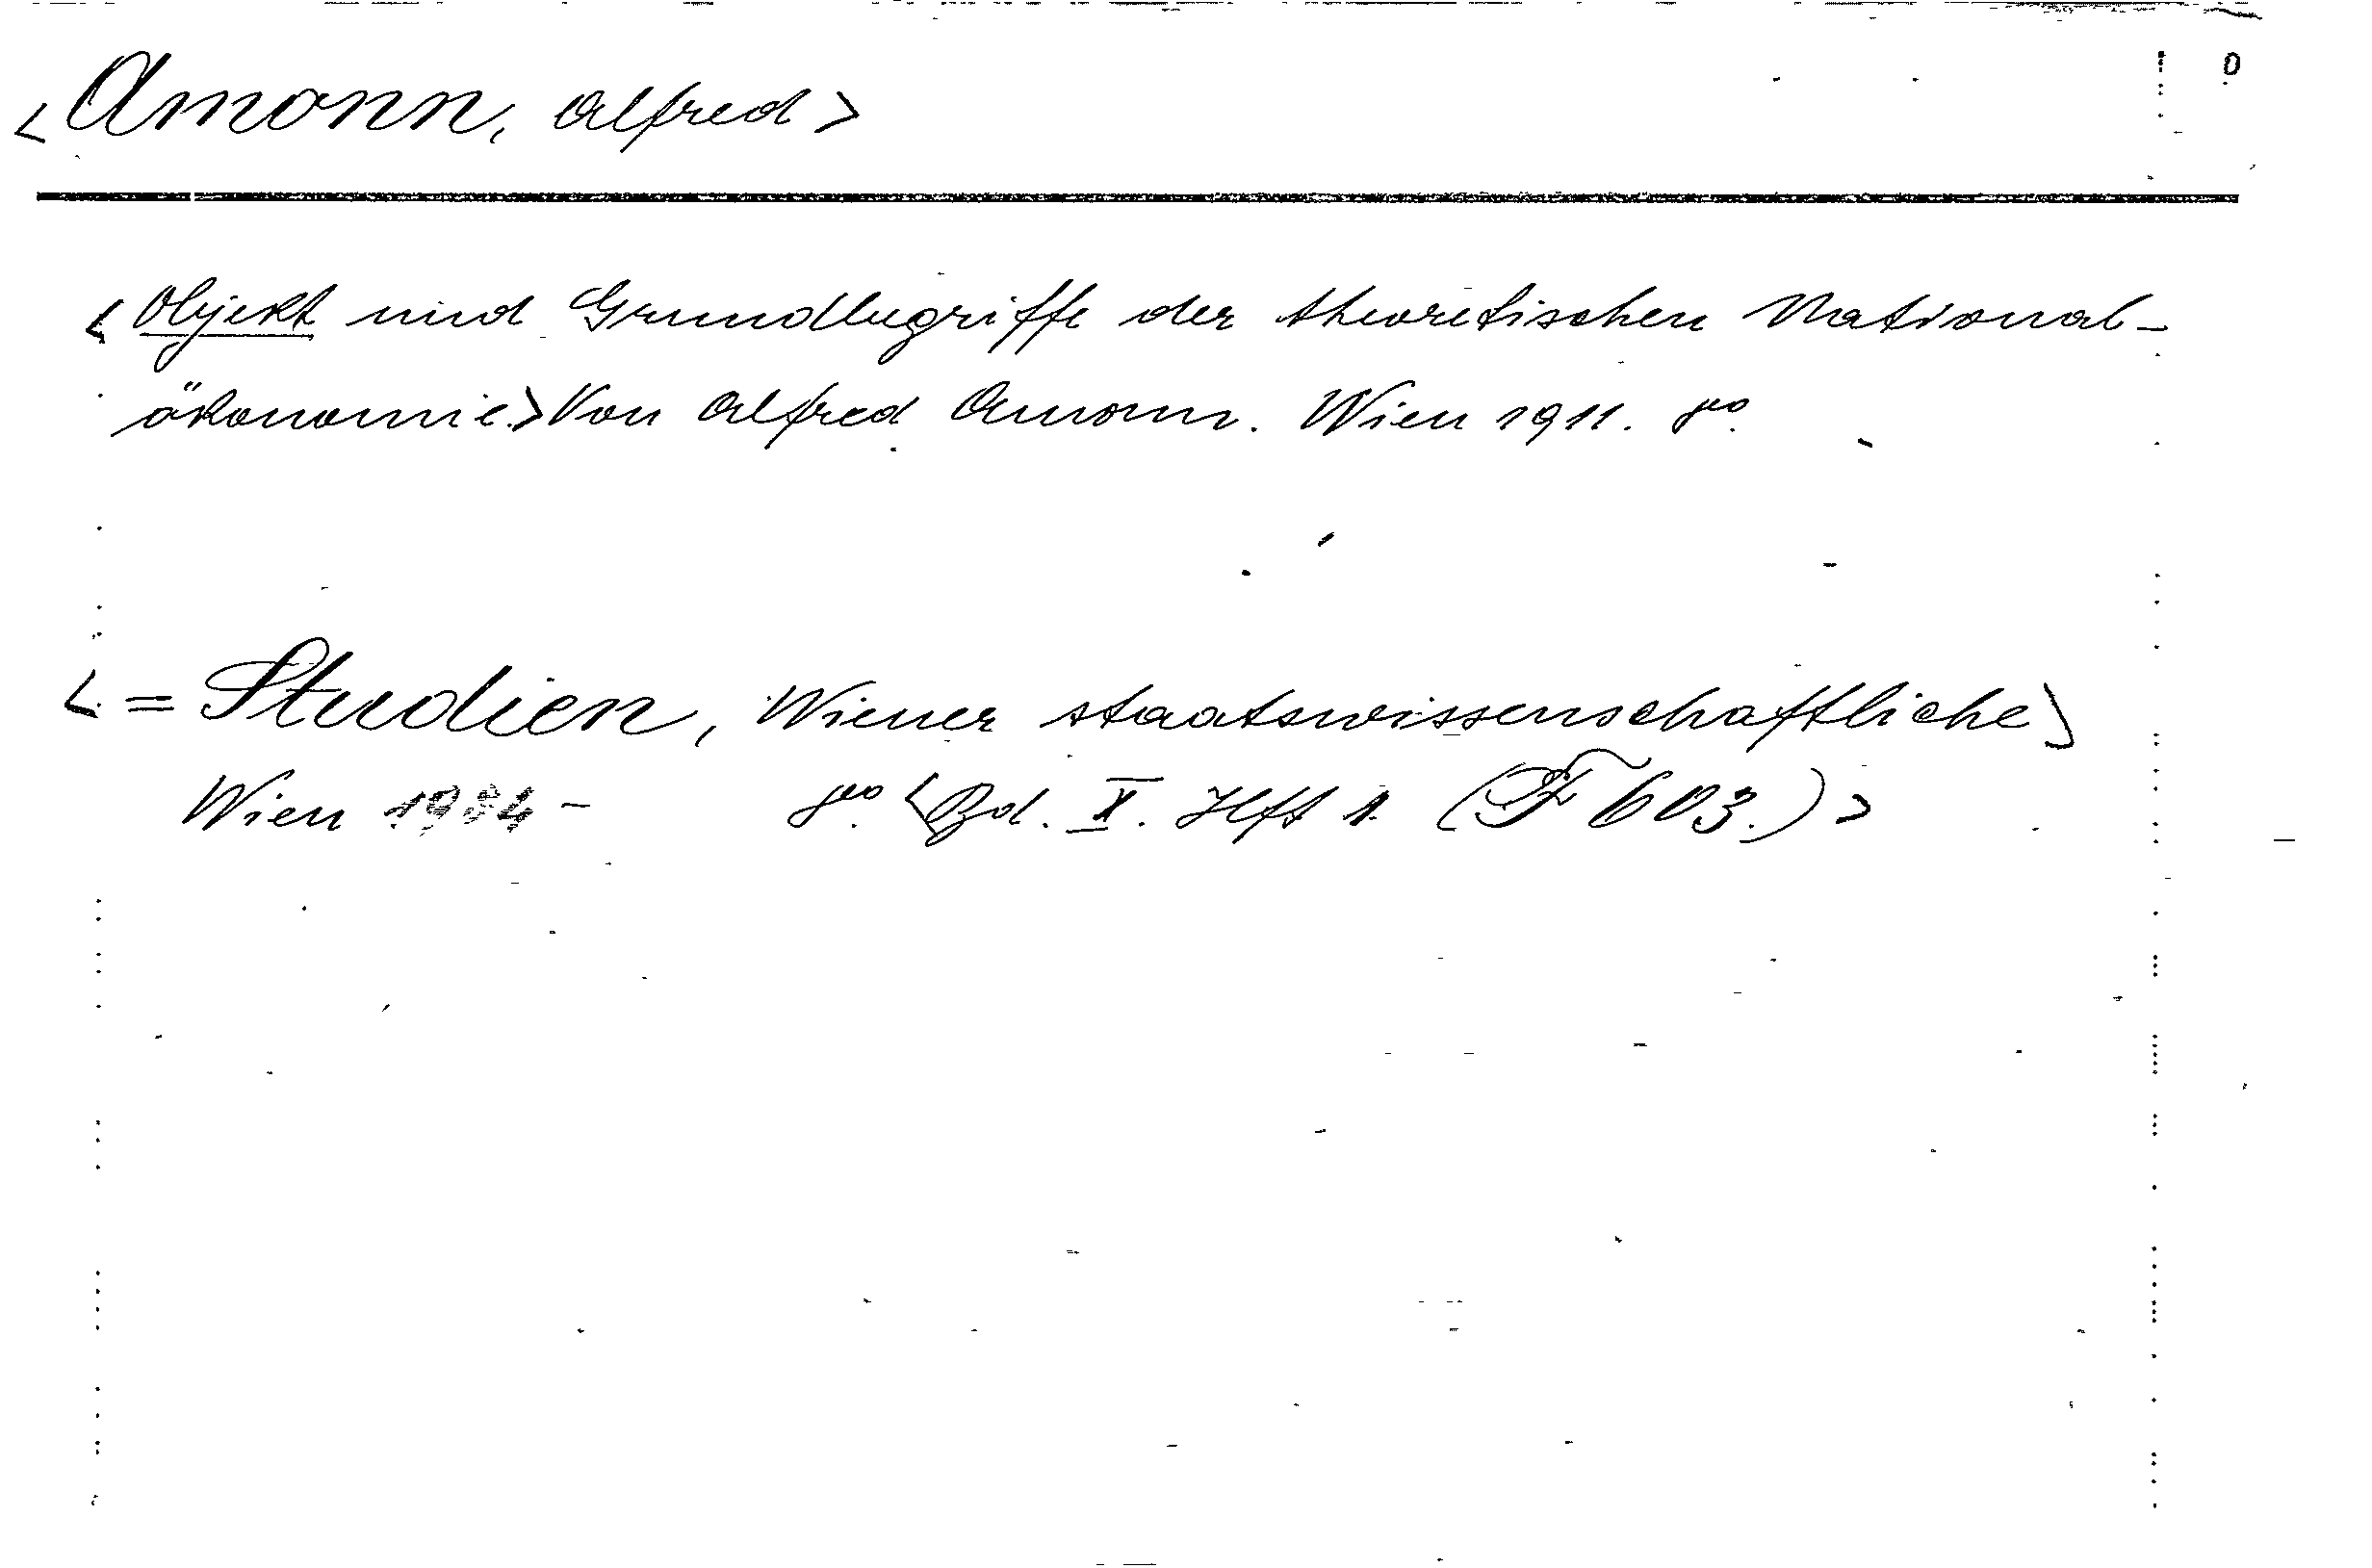 <Amonn, Alfred>
<Objekt und Grundbegriffe der theoretischen National-
ökonomie.> Von Alfred Amonn. Wien 1911. 8vo.
<= Studien, Wiener staatswissenschaftliche>
Wien 8vo. <Bd. X. Hft 1. (F 603.)>